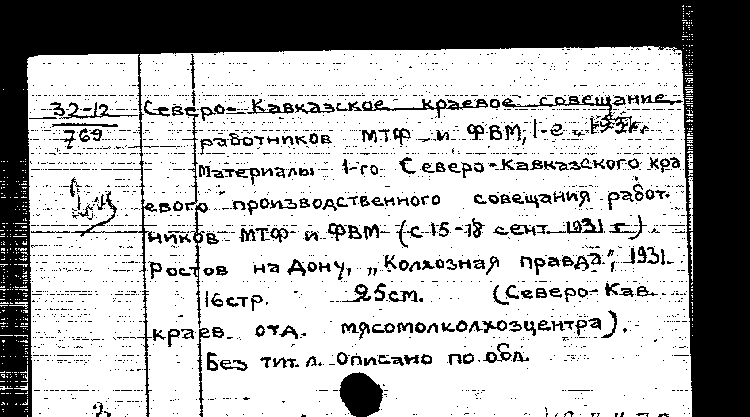 32-12
769
Северо-Кавказское краевое совещание
работников МТФ и ФВМ, 1-е, 1931г.
Материалы 1-го Северо-Кавказского кра
евого производственного совещания работ-
ников МТФ и ФВМ (с 15-18 сент. 1931 г.).
Ростов на Дону, „Колхозная правда", 1931.
16стр. 25см. (Северо-Кав.
краев. отд. мясомолколхозцентра).
Без тит. л. Описано по обл.